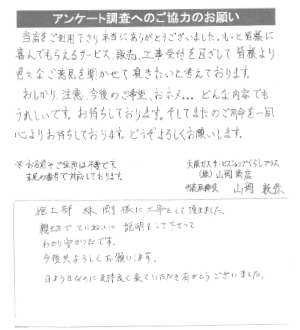 アンケート調査へのご協力のお願い
当店をご利用下さり本当にありがとうございました。もっと皆様に
喜んでもらえるサービス、販売、工事受付を目ざして皆様より
色々なご意見を聞かせて頂きたいと考えております。
おしかり、注意、今後のご希望、おホメ… どんな内容でも
うれしいです。お待ちしております。そしてまたのご用命を一同
心よりお待ちしております。どうぞよろしくお願いします。
※お名前やご住所は不要です。
末尾の番号で対応しております。
大阪ガスサービスショップくらしプラス
(株)山岡商店
代表取締役 山岡
施工部 林 様に工事をして頂きました。
親切でていねいに説明をして下さって
わかり安かったです。
今後共よろしくお願いします。
日よう日なのに気持良く来ていただきありがとうございました。